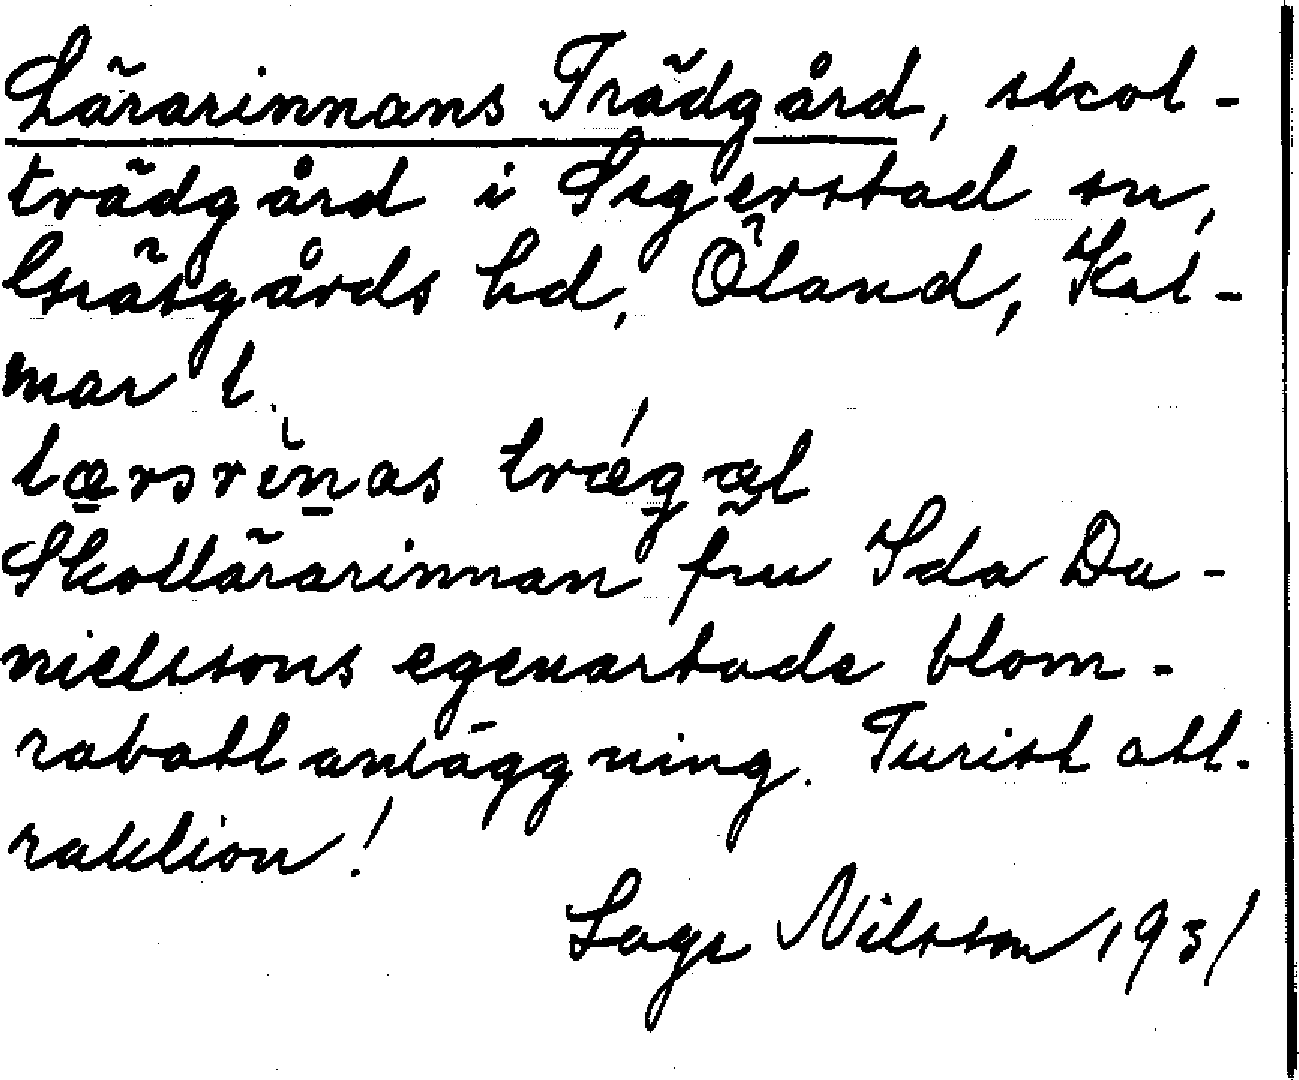 Lärarinnans Trädgård, skol-
trädgård i Segerstad sn,
Gräsgårds hd, Öland, Kal-
mar l.
trǽgal
Skollärarinnan fru Ida Da-
nielssons egenartade blom-
rabattanläggning. Turistatt-
raktion!
Sage Nilsson 1931